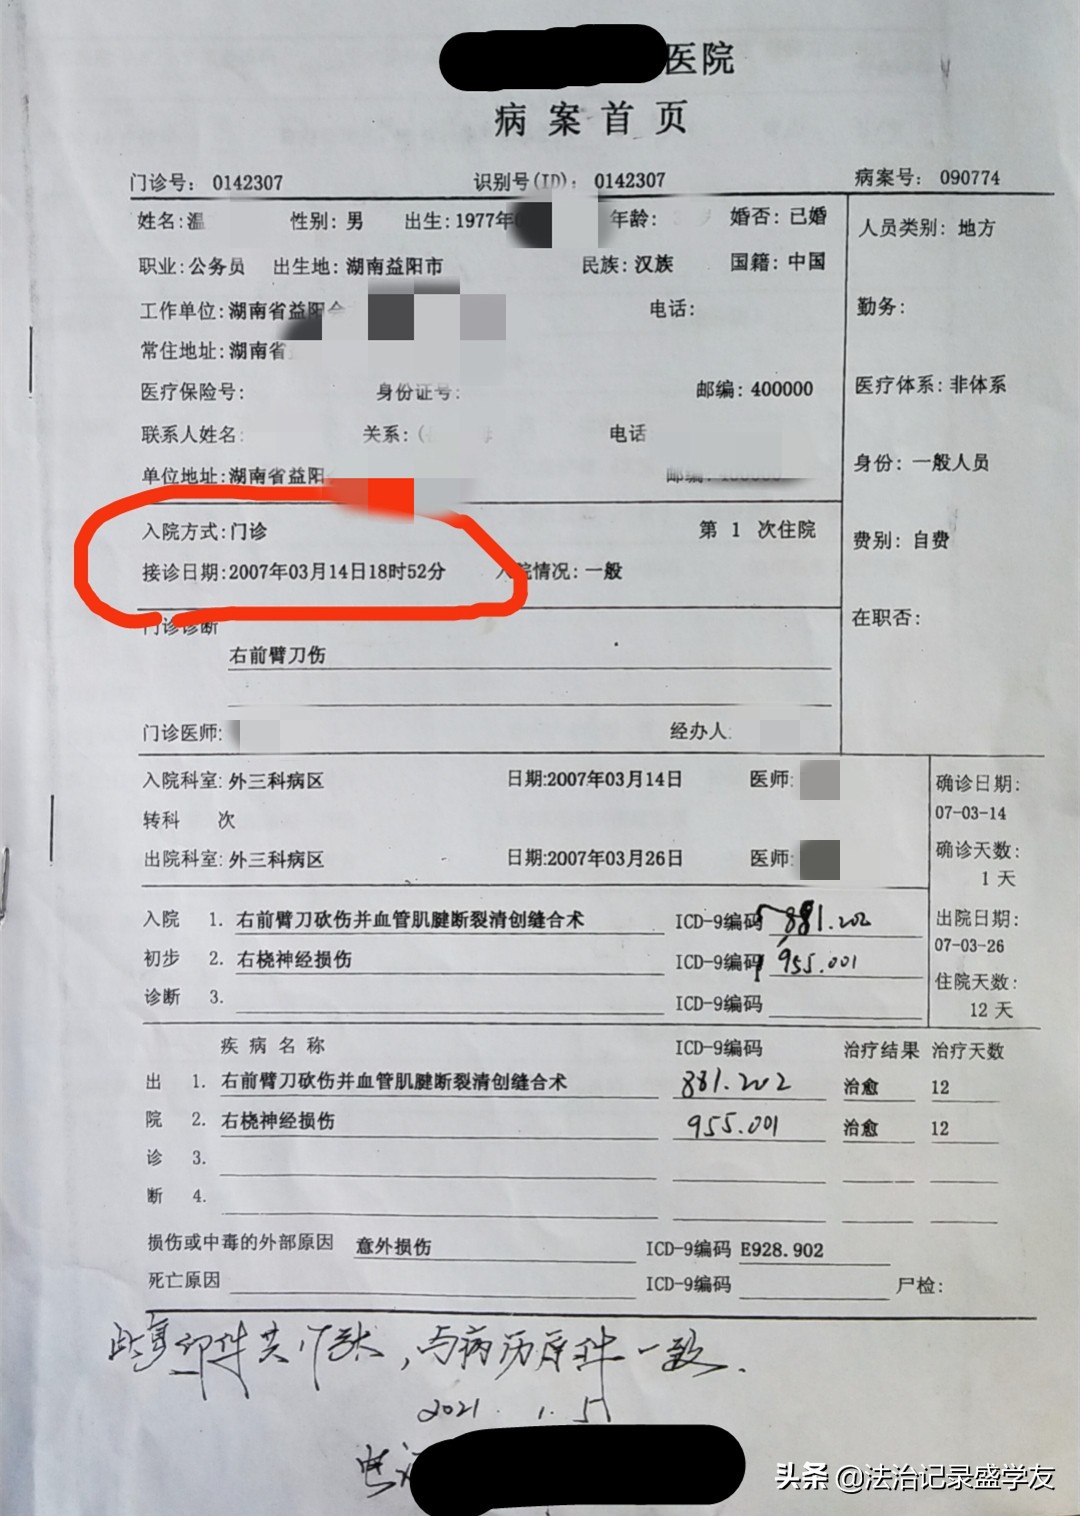 医院
病案首页
门诊号: 0142307 识别号(ID): 0142307 病案号: 090774
姓名:温 性别: 男 出生:1977年 年龄: 婚否: 已婚 人员类别: 地方
职业:公务员 出生地: 湖南益阳市 民族: 汉族 国籍: 中国
工作单位:湖南省益阳 电话: 勤务:
常住地址:湖南省
医疗保险号: 身份证号: 邮编: 400000 医疗体系: 非体系
联系人姓名: 关系:( 电话
单位地址:湖南省益阳 邮编: 400000 身份: 一般人员
入院方式:门诊 第 1 次住院 费别: 自费
接诊日期:2007年03月14日18时52分 入院情况:一般
门诊诊断 在职否:
右前臂刀伤
门诊医师: 经办人:
入院科室: 外三科病区 日期:2007年03月14日 医师: 确诊日期:
07-03-14
转科 次
出院科室: 外三科病区 日期:2007年03月26日 医师: 确诊天数:
1 天
入院 1. 右前臂刀砍伤并血管肌腱断裂清创缝合术 ICD-9编码 881.202 出院日期:
07-03-26
初步 2. 右桡神经损伤 ICD-9编码 955.001
诊断 3. ICD-9编码 住院天数:
12 天
疾病名称 ICD-9编码 治疗结果 治疗天数
出 1. 右前臂刀砍伤并血管肌腱断裂清创缝合术 881.202 治愈 12
院 2. 右桡神经损伤 955.001 治愈 12
诊 3.
断 4.
损伤或中毒的外部原因 意外损伤 ICD-9编码 E928.902
死亡原因 ICD-9编码 尸检:
此复印件共 张,与病历原件一致.
2021. 1. 5
头条 @法治记录盛学友